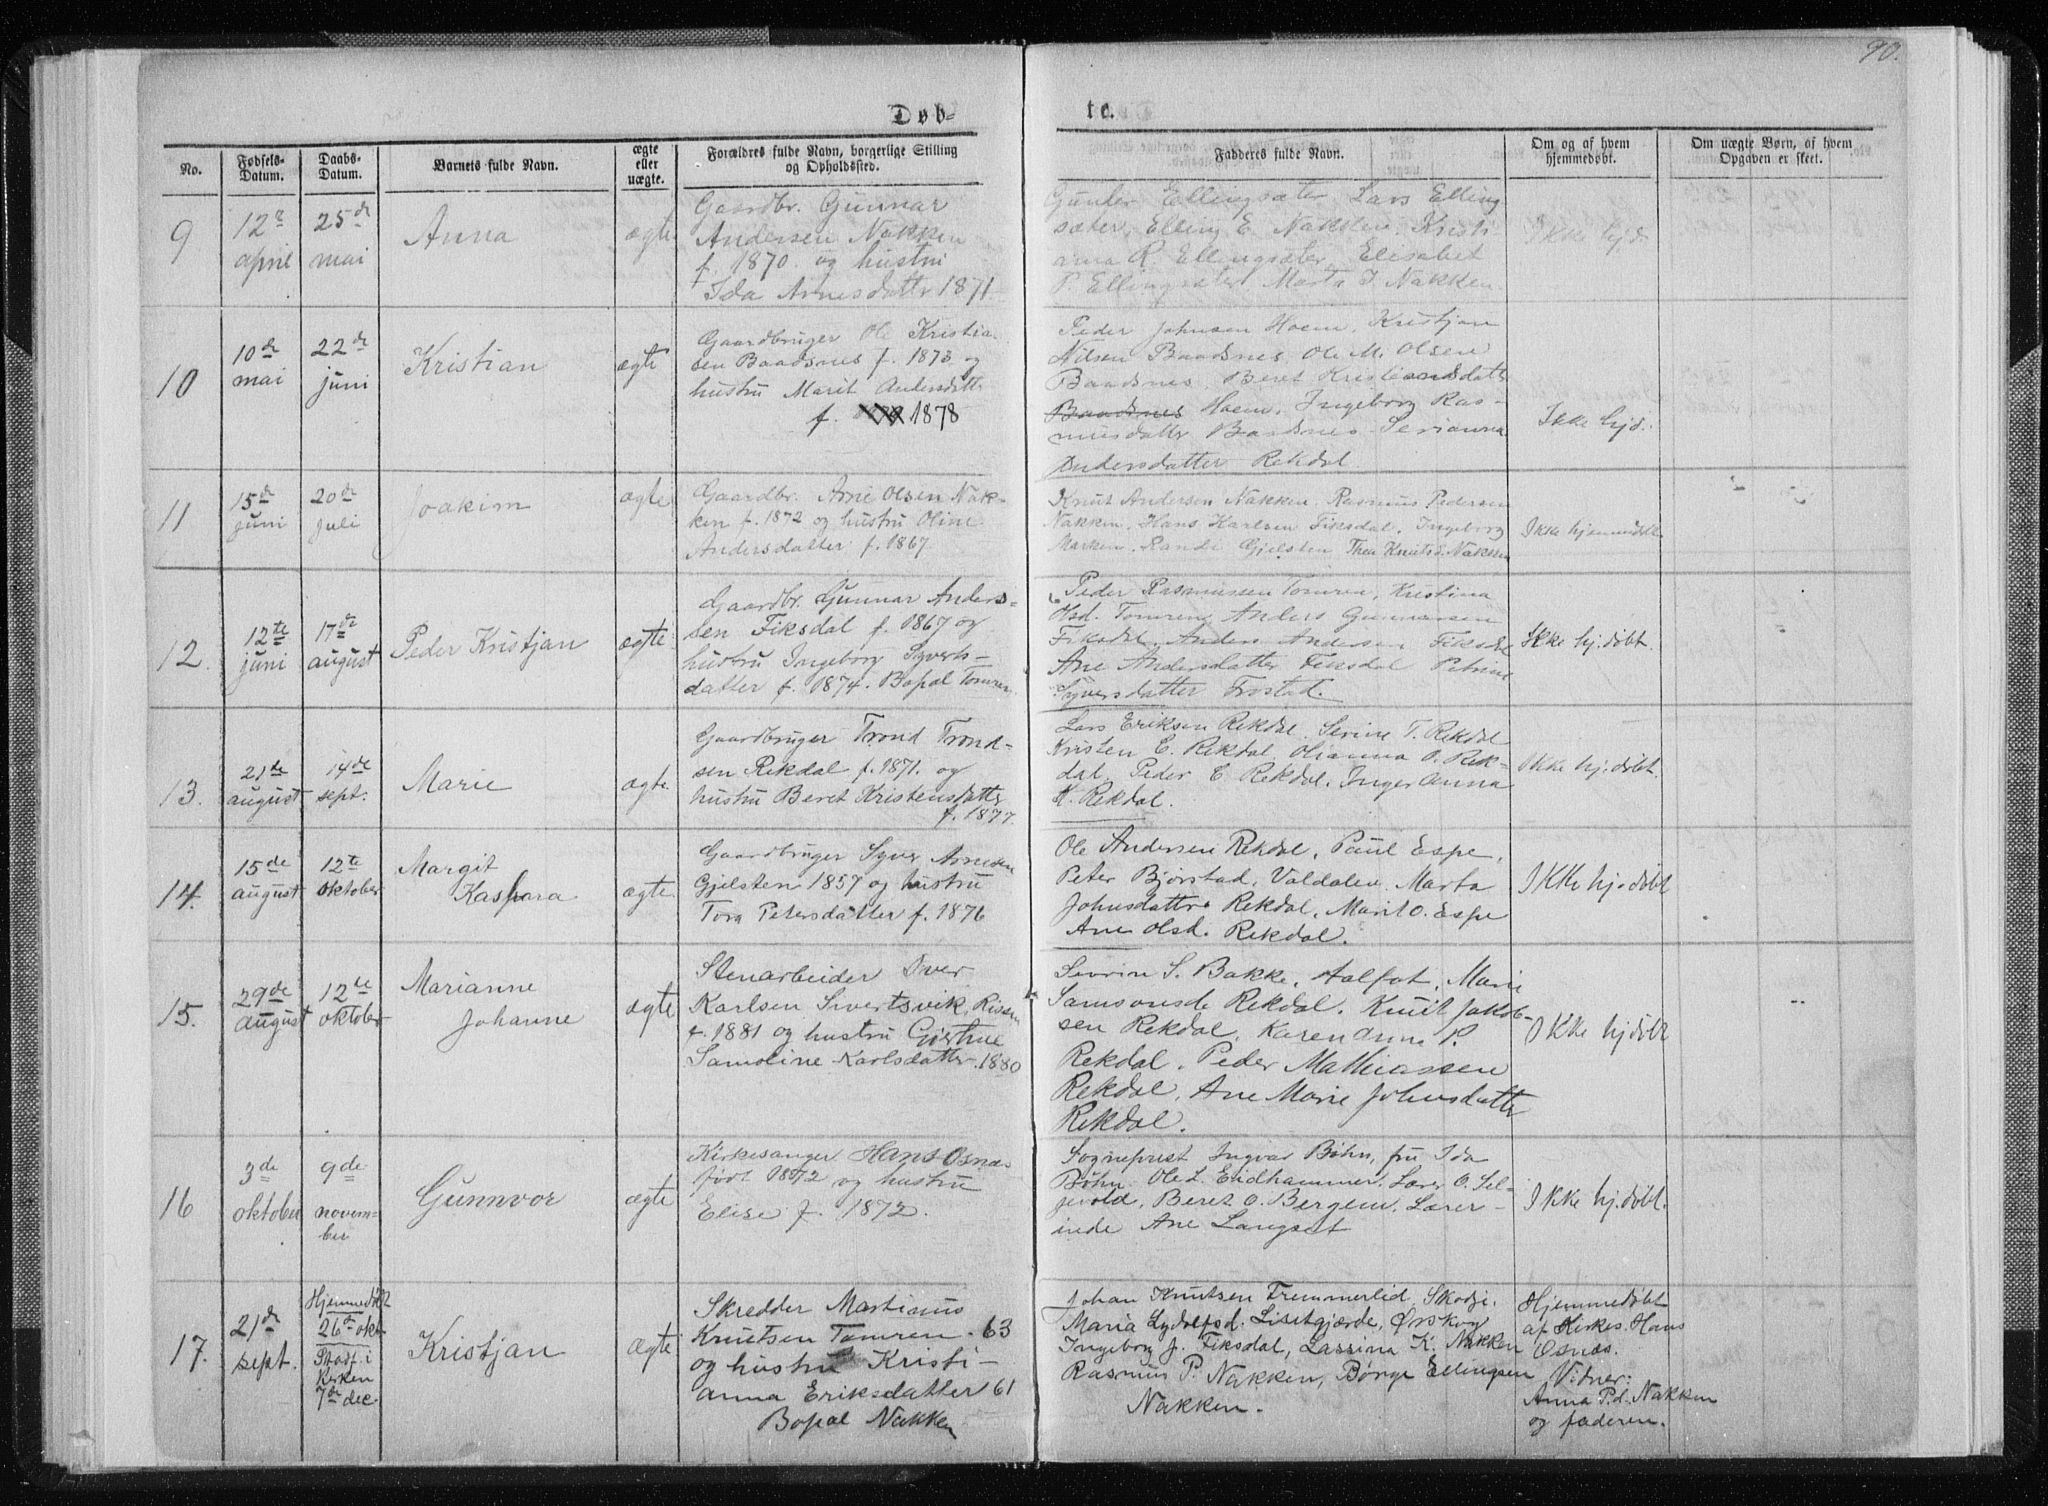 90.
Døb-
te.
No.
Fødsels-
Datum.
Daabs-
Datum.
Barnets fulde Navn.
ægte
eller
uægte.
Forældres fulde Navn, borgerlige Stilling
og Opholdssted.
Fadderes fulde Navn.
Om og af hvem
hjemmedøbt.
Om uægte Børn, af hvem
Opgaven er skeet.
9
12te
april
25de
mai
Anna
ægte
Gaardbr. Gunnar
Andersen Nakken
f. 1870 og hustru
Ida Arnesdatter 1871
Gunder Ellingsæter Lars Elling
sæter, Elling E. Nakken, Kristi
anna R. Ellingsæter, Elisabet
P. Ellingsæter, Marta J. Nakken.
Ikke hjd.
10
10de
mai
22de
juni
Kristian
ægte
Gaardbruger Ole Kristia
sen Baadsnes f. 1873 og
hustru Marit Andersdatt
f. 1878
Peder Johnsen Hoem, Kristjan
Nilsen Baadsnes, Ole M. Olsen
Baadsnes, Beret Kristiansdatter
Baadsnes Hoem, Ingeborg Ras-
musdatter Baadsnes Serianna
Andersdatter Rekdal
Ikke hjd.
11
15de
juni
20de
juli
Joakim
ægte
Gaardbr. Arne Olsen Nak-
ken f. 1872 og hustru Oline
Andersdatter f. 1867
Knut Andersen Nakken. Rasmus Pedersen
Nakken, Hans Karlsen Fiksdal, Ingeborg
Marken, Randi Gjelsten, Thea Knutsd. Nakken
Ikke hjemmedøbt
12.
12te
juni
17de
august
Peder Kristjan
ægte
Gaardbr. Gunnar Anders-
sen Fiksdal f. 1867 og
hustru Ingeborg Syverts-
datter f. 1874. Bopal Tomren
Peder Rasmussen Tomren, Kristina
Olsd. Tomren, Anders Gunnarsen
Fiksdal, Anders Andersen Fiksdal
Ane Andersdatter Fiksdal Petrine
Syversdatter Frostad.
Ikke hj.døbt.
13.
21de
august
14de
sept.
Marie
ægte
Gaardbruger Trond Trond-
sen Rekdal f. 1871. og
hustru Beret Kristensdatter
f. 1877.
Lars Eriksen Rekdal. Serine T. Rekdal
Kristen E. Rekdal, Olianna P. Rek-
dal, Peder E. Rekdal, Inger Anna
K. Rekdal.
Ikke hj.døbt.
14.
15de
august
12te
oktober
Margit
Kaspara
ægte
Gaardbruger Syver Arnesen
Gjelsten 1857 og hustru
Tora Petersdatter f. 1876
Ole Andersen Rekdal, Paul Espe,
Peter Bjørstad, Valdalen, Marta
Johnsdatter Rekdal, Marit O. Espe
Ane Olsd. Rekdal.
Ikke hj.døbt
15.
29de
august
12te
oktober
Marianne
Johanne
ægte
Stenarbeider Iver
Karlsen Sivertsvik, Rissen
f. 1881 og hustru Gjertrue
Samoline Karlsdatter. 1880
Sevrin S. Bakke, Aalfot, Marie
Samsonsd. Rekdal, Knut Jakob-
sen Rekdal, Karen Anna P.
Rekdal. Peder Mathiassen
Rekdal, Ane Marie Johnsdatter
Rekdal.
Ikke hjdøbt
16
3de
oktober
9de
novem-
ber
Gunnvor
ægte
Kirkesanger Hans Osnæs
født 1872 og hustru
Elise f. 1872.
Sogneprest Ingvar Bøhn, fru Ida
Bøhn. Ole L. Eidhammer, Lærer O. Sil-
jevold, Beret O. Bergem, Lærer-
inde Ane Langset
Ikke hj.døbt.
17.
21de
sept.
Hjemmedøbt
26de okt.
Stadf. i
Kirken
7de dec.
Kristjan
ægte
Skredder Martinus
Knutsen Tomren. 63
og hustru Kristi-
anna Eriksdatter 61
Bopal Nakken
Johan Knutsen Fremmerlid, Skodje.
Maria Lydolfsd. Lisetgjærde, Ørskog
Ingeborg J. Fiksdal, Lassina K. Nakken
Rasmus P. Nakken, Børge Ellingsen
Nakken.
Hjemmedøbt
af Kirkes. Hans
Osnæs.
Vidner:
Anna P.d. Nakken
og faderen.